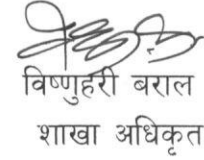 विष्णुहरी बराल
शाखा अधिकृत